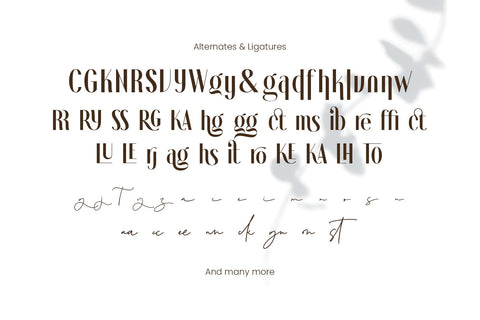 Alternates & Ligatures
CGKNRSUYWgy&gadfhklvnηw
RR RY SS RG KA hg gg ct ms ib re ffi ct
LU LE rj ag hs it ro KE KA LH TO
aa cc ee nn ck gn on st
And many more